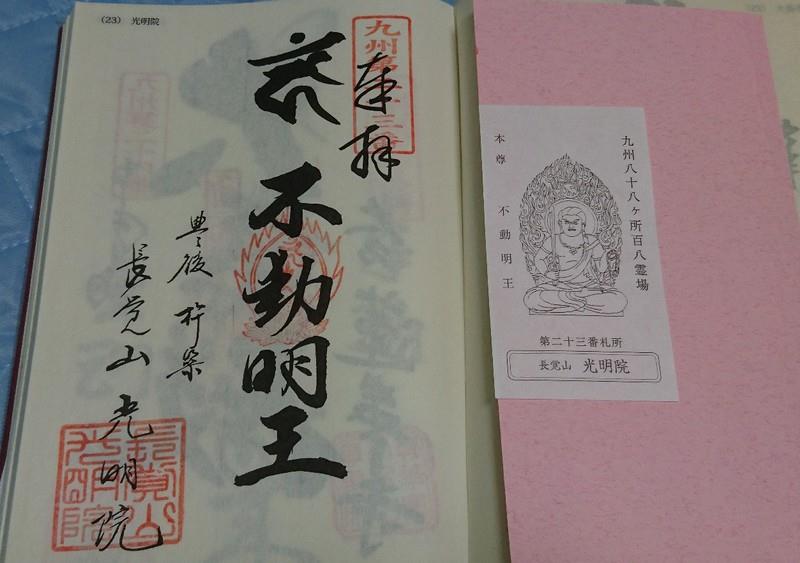 (23) 光明院
九州第二十三番
奉拝
不動明王
豊後 杵築
長覚山 光明院
長覚山光明院
九州八十八ヶ所百八霊場
本尊 不動明王
第二十三番札所
長覚山 光明院